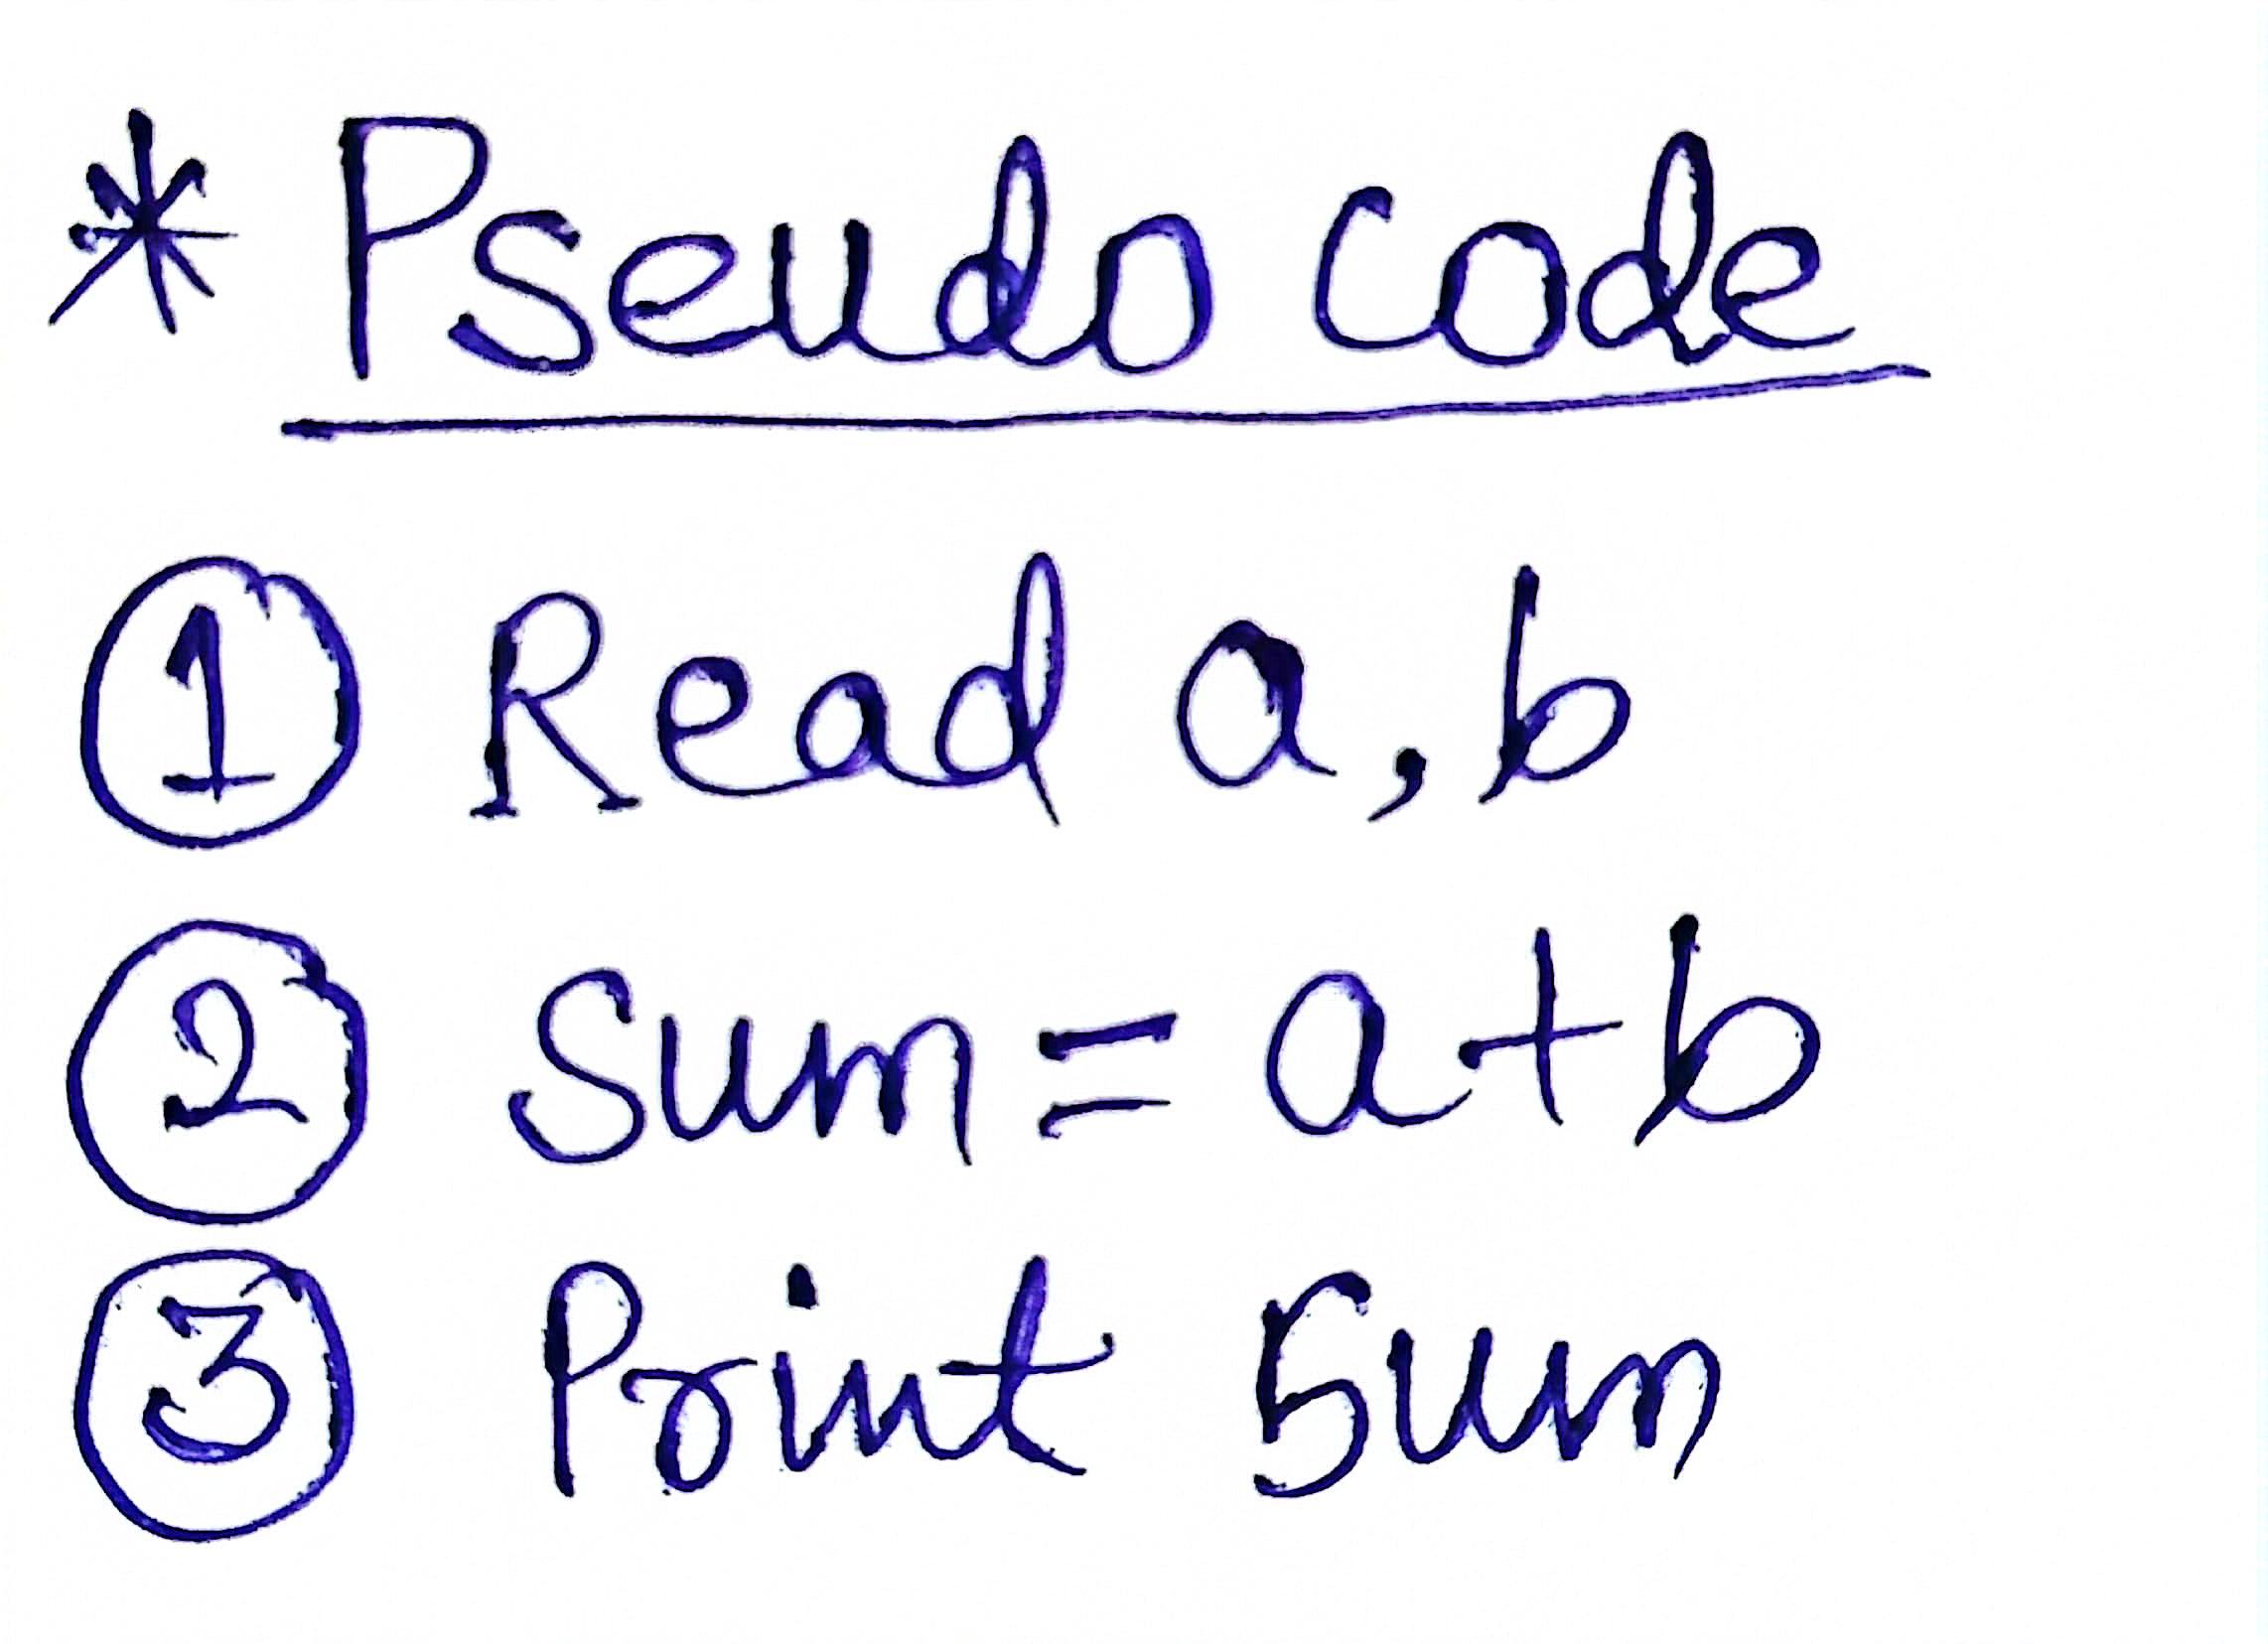 * Pseudo code
1 Read a, b
2 Sum = a+b
3 Print Sum